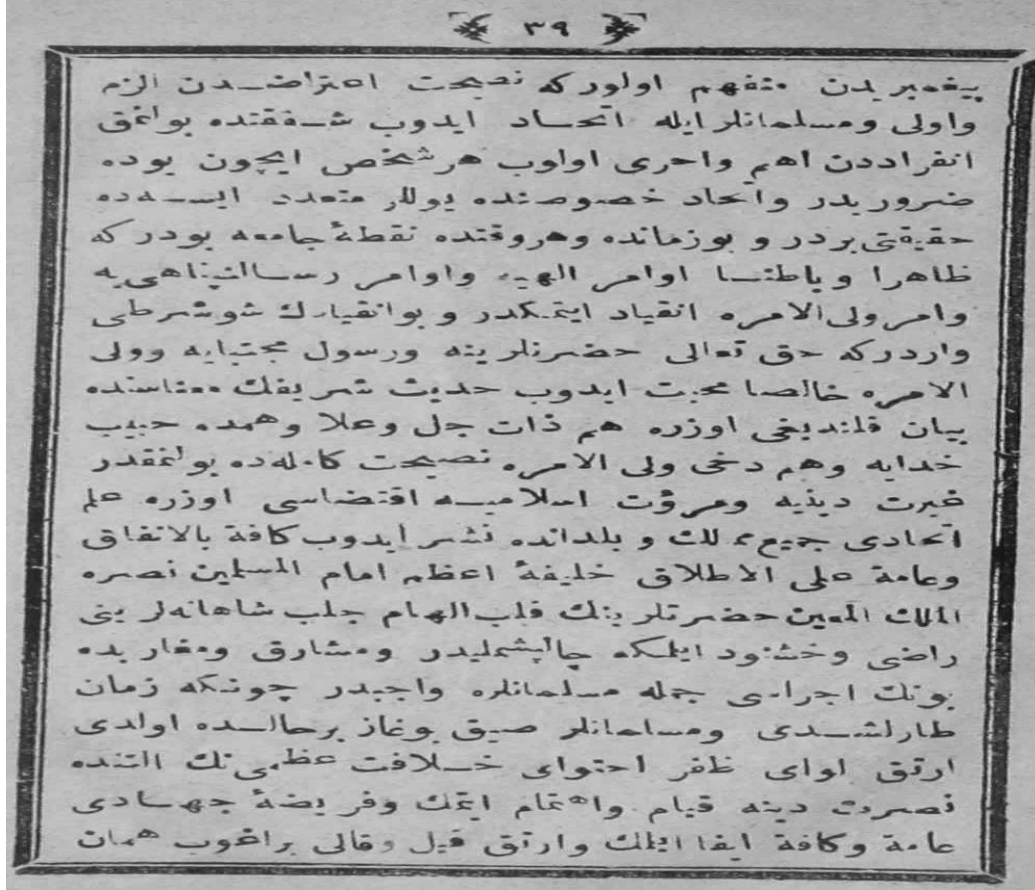 ٣٩
پیغمبریدن متفهم اولور که نصیحت اعتراضدن الزم
واولی ومسلمانلر ایله اتحاد ایدوب شفقتده بولنمق
انفراددن اهم واحری اولوب هر شخص ایچون بوده
ضروریدر واتحاد خصوصنده یوللر متعدد ایسهده
حقیقتی بردر و بوزمانده وهروقتده نقطهٔ جامعه بودر که
ظاهرا وباطنا اوامر الهیه واوامر رسالتپناهی یه
وامر ولی الامره انقیاد ایتمکدر و بوانقیادك شوشرطی
واردرکه حق تعالی حضرتلرینه ورسول مجتبایه وولی
الامره خالصا محبت ایدوب حدیث شریفك معناسنده
بیان قلندیغی اوزره هم ذات جل وعلا وهمده حبیب
خدایه وهم دخی ولی الامره نصیحت کاملهده بولنمقدر
غیرت دینیه ومروّت اسلامیه اقتضاسی اوزره علم
اتحادی جمیع ممالك و بلدانده نشر ایدوب کافة بالاتفاق
وعامة علی الاطلاق خلیفهٔ اعظم امام المسلمین نصره
الملك المعین حضرتلرینك قلب الهام جلب شاهانهلرینی
راضی وخشنود ایلمکه چالیشملیدر ومشارق ومغاربده
بونك اجراسی جمله مسلمانلره واجبدر چونکه زمان
طارلشدی ومسلمانلر صیق بوغاز برحالده اولدی
ارتق لوای ظفر احتوای خلافت عظمی نك التنده
نصرت دینه قیام واهتمام ایتمك وفریضهٔ جهادی
عامة وکافة ایفا ایلمك وارتق قیل وقالی براغوب همان